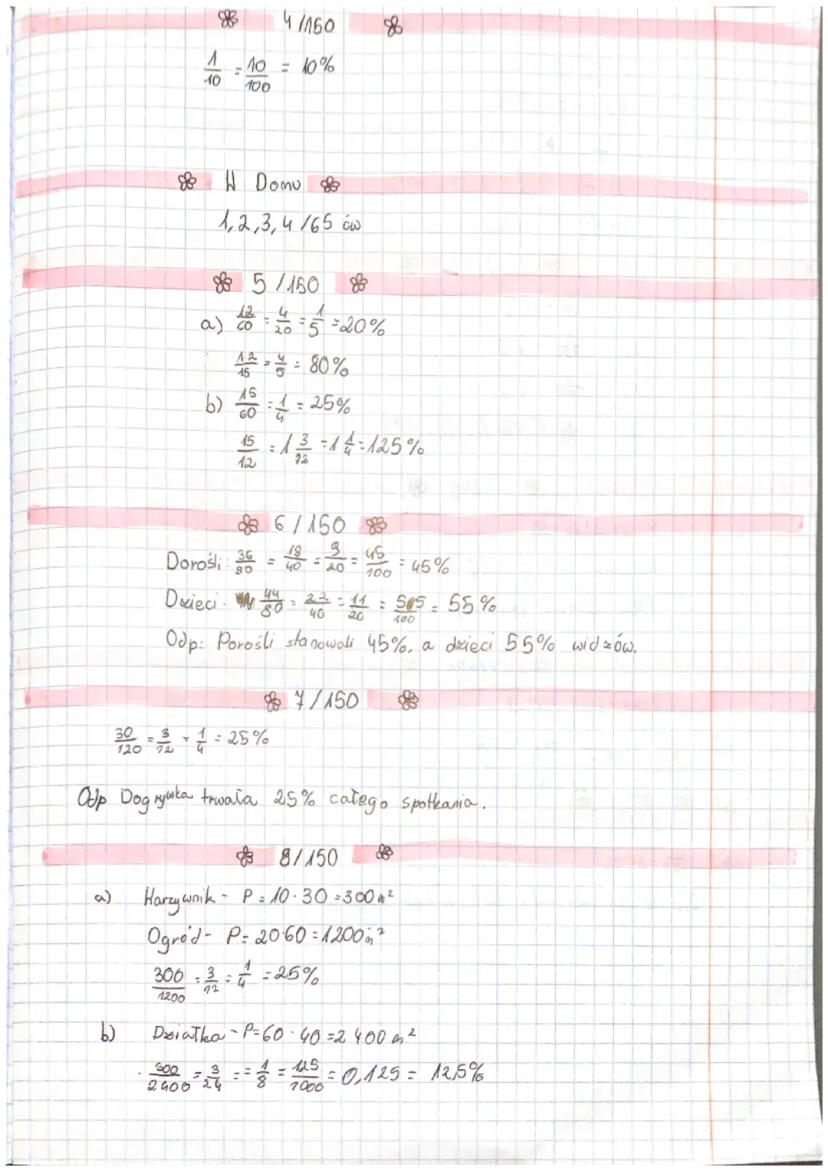 4/150
1/10 = 10/100 = 10%
W Domu
1,2,3,4/65 ćw
5/150
a) 12/60 = 4/20 = 1/5 = 20%
12/15 = 4/5 = 80%
b) 15/60 = 1/4 = 25%
15/12 = 1 3/12 = 1 1/4 = 125%
6/150
Dorośli: 36/80 = 18/40 = 9/20 = 45/100 = 45%
Dzieci: 44/80 = 22/40 = 11/20 = 55/100 = 55%
Odp: Dorośli stanowoli 45%, a dzieci 55% widzów.
7/150
30/120 = 3/12 = 1/4 = 25%
Odp Dogrywka trwała 25% całego spotkania.
8/150
a) Warzywnik - P = 10 · 30 = 300 m²
Ogród - P = 20·60 = 1200 m²
300/1200 = 3/12 = 1/4 = 25%
b) Działka - P = 60 · 40 = 2 400 m²
300/2400 = 3/24 = = 1/8 = 125/1000 = 0,125 = 12,5%